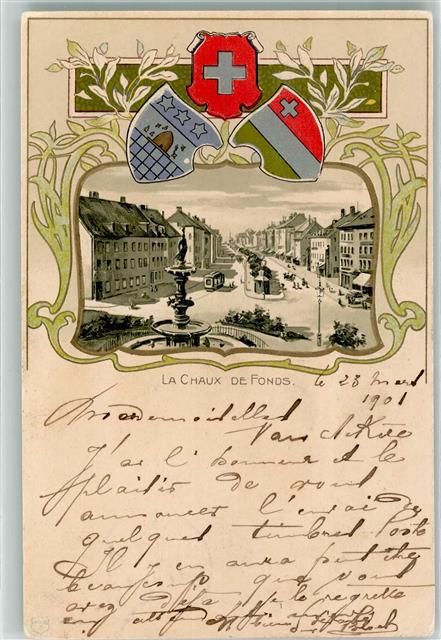 LA CHAUX DE FONDS.
le 23 mars
1901
Mademoiselles
Van
J'ai l'honneur et le
plaisir de vous
annoncer l'envoi de
quelques timbres poste
Il y en aura peut être
beaucoup que vous
avez déjà je le regrette